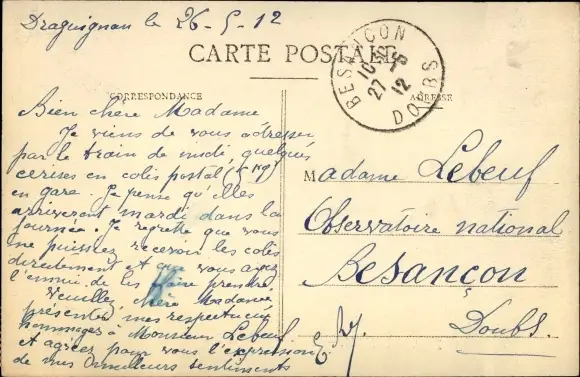 Draguignan le 26-5-12
CARTE POSTALE
CORRESPONDANCE
ADRESSE
BESANÇON
DOUBS
27 -5
12
Bien chère Madame
Je viens de vous adresser
par le train de midi, quelques
cerises en colis postal
en gare. Je pense qu'elles
arriveront mardi dans la
journée. Je regrette que vous
ne puissiez recevoir les colis
directement et que vous ayez
l'ennui de les faire prendre.
Veuillez chère Madame
présenter mes respectueux
hommages à Monsieur Lebeuf
et agréez pour vous l'expression
de mes meilleurs sentiments
Madame Lebeuf
Observatoire national
Besançon
Doubs.